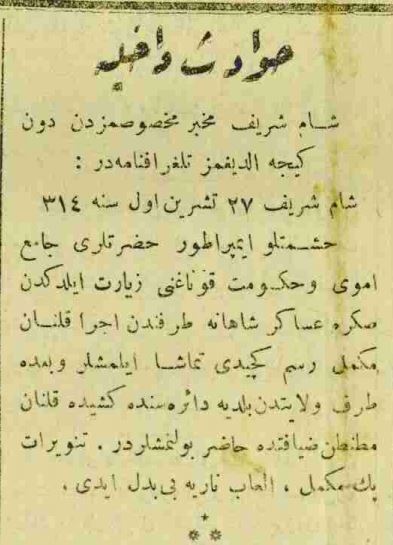 حوادث داخليه
شام شريف مخبر مخصوصمزدن دون
كيجه الديغمز تلغرافنامه‌در :
شام شريف ٢٧ تشرين اول سنه ٣١٤
حشمتلو ايمپراطور حضرتلرى جامع
اموى وحكومت قوناغنى زيارت ايلدكدن
صكره عساكر شاهانه طرفندن اجرا قلنان
مكمل رسم كچيدى تماشا ايلمشلر وبعده
طرف ولايتدن بلديه دائره‌سنده كشيده قلنان
مطنطن ضيافتده حاضر بولنمشلردر . تنويرات
پك مكمل ، العاب ناريه بى بدل ايدى .
* * *